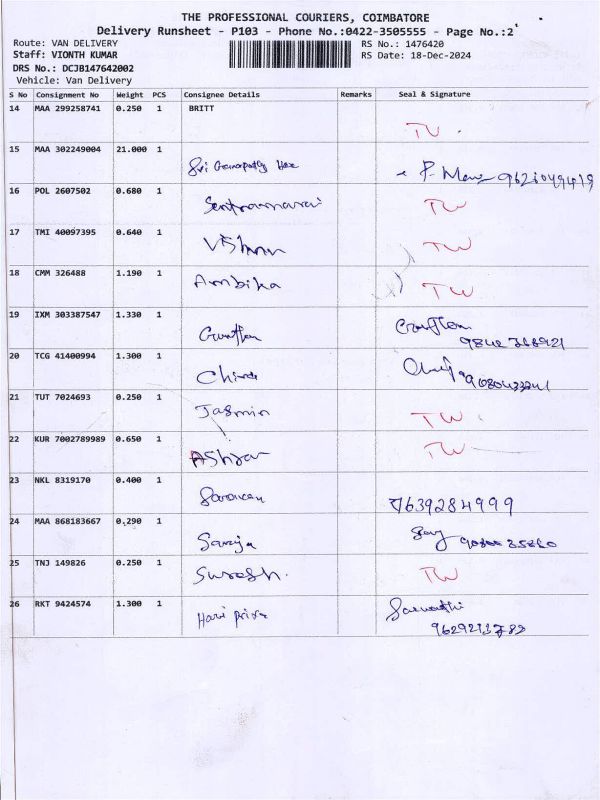 THE PROFESSIONAL COURIERS, COIMBATORE
Delivery Runsheet - P103 - Phone No.:0422-3505555 - Page No.:2
Route: VAN DELIVERY RS No.: 1476420
Staff: VIONTH KUMAR RS Date: 18-Dec-2024
DRS No.: DCJB147642002
Vehicle: Van Delivery
S No Consignment No Weight PCS Consignee Details Remarks Seal & Signature
14 MAA 299258741 0.250 1 BRITT
TW
15 MAA 302249004 21.000 1
Sri
16 POL 2607502 0.680 1
TW
17 TMI 40097395 0.640 1
TW
18 CMM 326488 1.190 1
Ambika TW
19 IXM 303387547 1.330 1
20 TCG 41400994 1.300 1
21 TUT 7024693 0.250 1
Jasmin TW
22 KUR 7002789989 0.650 1
TW
23 NKL 8319170 0.400 1
7639284999
24 MAA 868183667 0.290 1
25 TNJ 149826 0.250 1
Suresh. TW
26 RKT 9424574 1.300 1
Hari priya